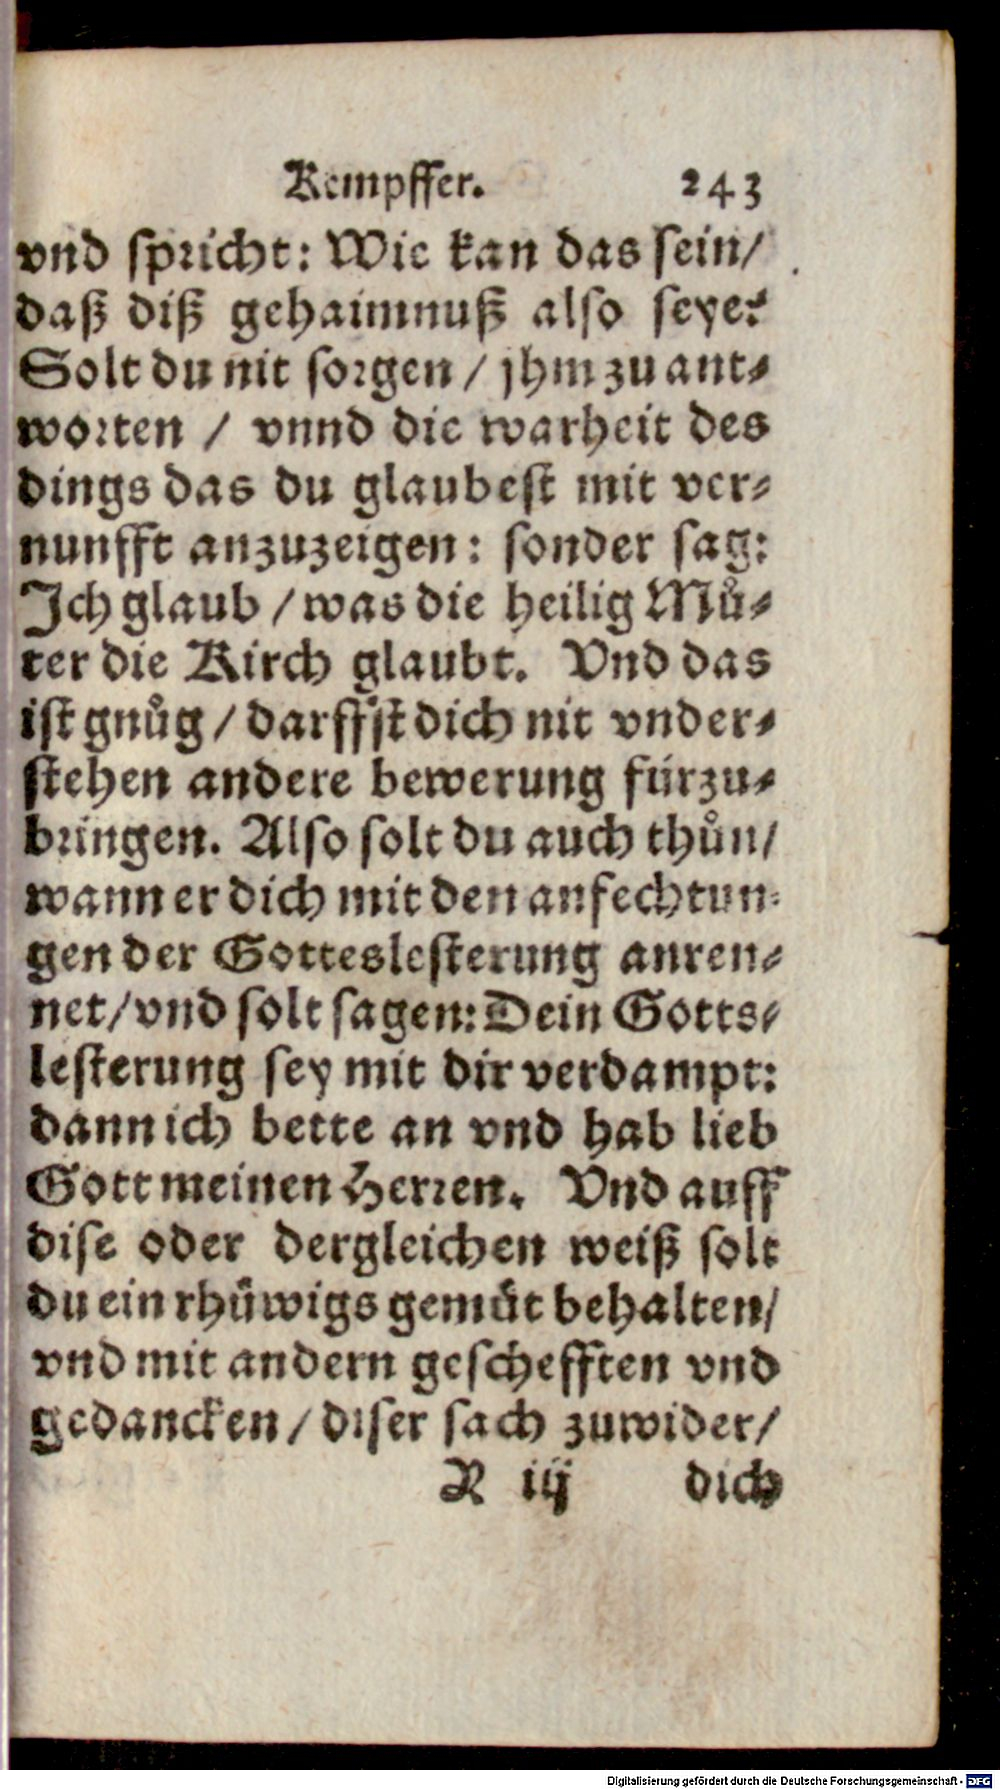 Kempffer. 243
vnd spricht: Wie kan das sein/
daß diß gehaimnuß also seye?
Solt du nit sorgen / jhm zu ant⸗
worten / vnnd die warheit des
dings das du glaubest mit ver⸗
nunfft anzuzeigen: sonder sag:
Ich glaub / was die heilig Mů⸗
ter die Kirch glaubt. Vnd das
ist gnůg / darffst dich nit vnder⸗
stehen andere bewerung fürzu⸗
bringen. Also solt du auch thůn/
wann er dich mit den anfechtun⸗
gen der Gotteslesterung anren⸗
net/ vnd solt sagen: Dein Gotts⸗
lesterung sey mit dir verdampt:
dann ich bette an vnd hab lieb
Gott meinen Herren. Vnd auff
dise oder dergleichen weiß solt
du ein rhüwigs gemüt behalten/
vnd mit andern geschefften vnd
gedancken / diser sach zuwider/
R iij dich
Digitalisierung gefördert durch die Deutsche Forschungsgemeinschaft - DFG